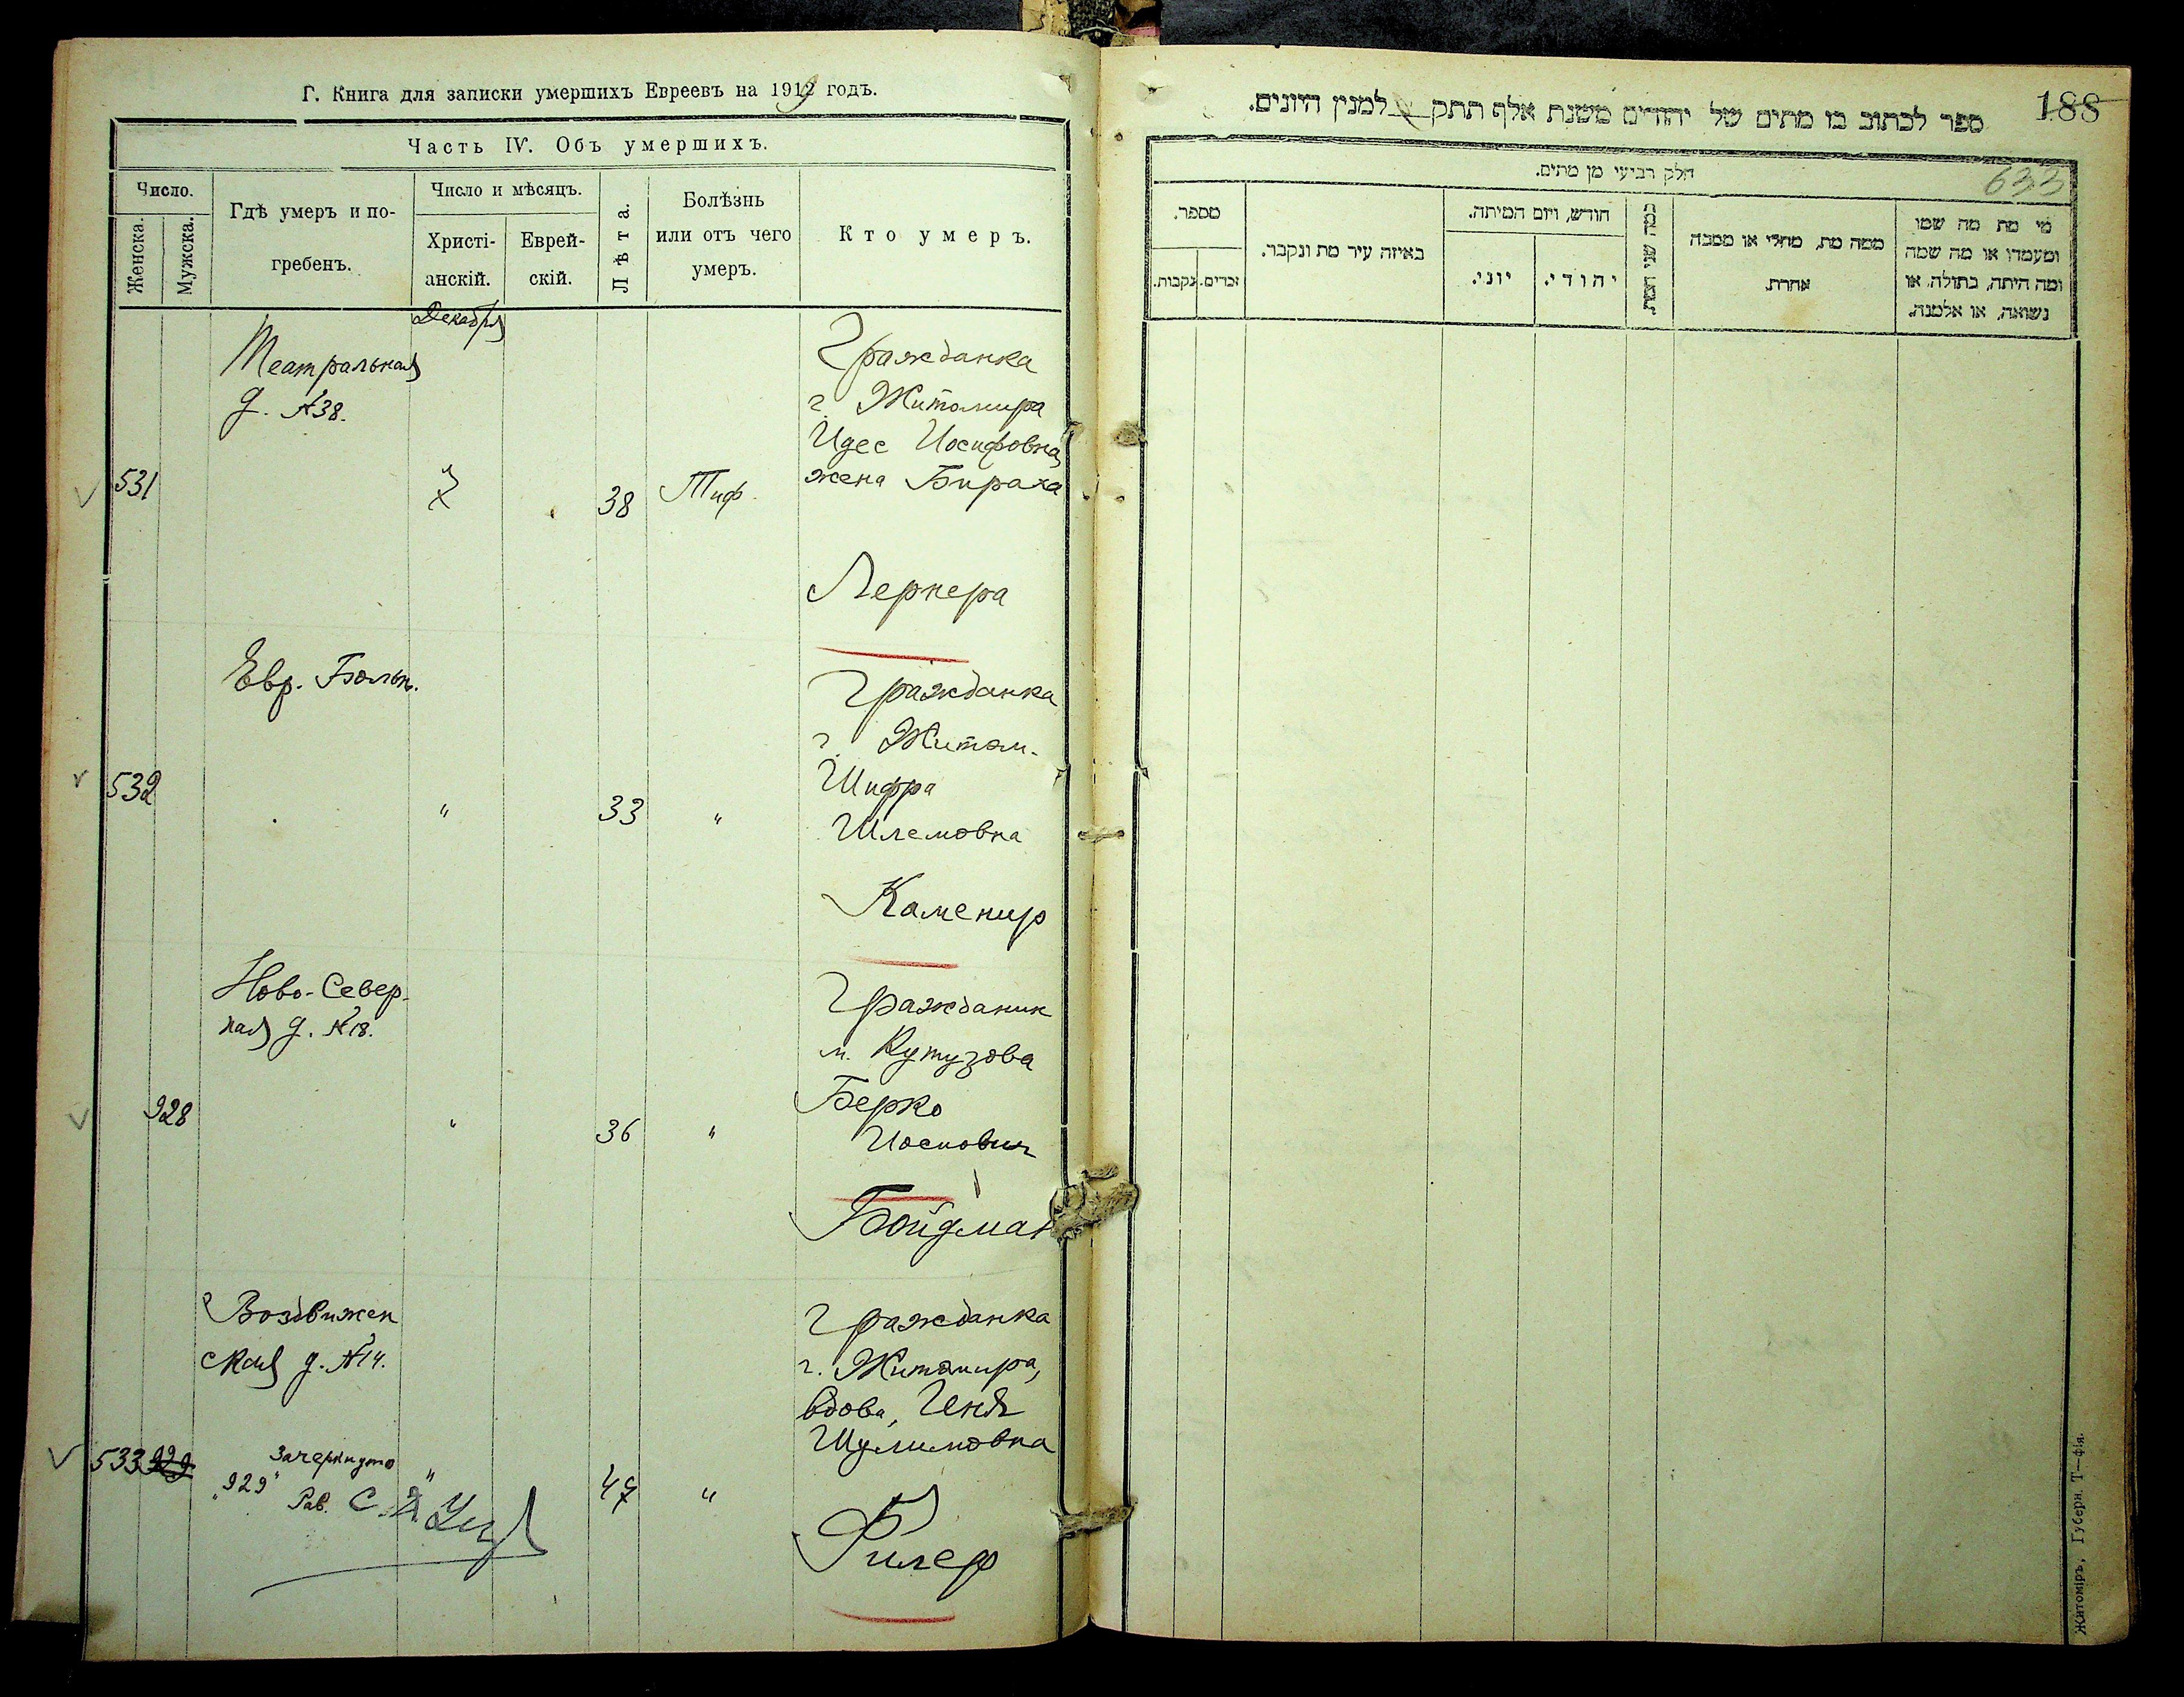 Г. Книга для записки умершихъ Евреевъ на 1919 годъ.
Часть IV. Объ умершихъ.
Число.
Женска.
Мужска.
Гдѣ умеръ и по-
гребенъ.
Число и мѣсяцъ.
Христі-
анскій.
Еврей-
скій.
Лѣта.
Болѣзнь
или отъ чего
умеръ.
Кто умеръ.
Декабря
Театральная
д. №38.
531
7
38
Тиф.
Гражданка
г. Житомира
Идес Иосифовна
жена Бираха
Лернера
Евр. Больн.
532
"
33
"
Гражданка
г. Житом.
Шифра
Шлемовна
Каменир
Ново-Север-
ная д. №18.
928
"
36
"
Гражданин
м. Кутузова
Берко
Иоснович
Бойдман
Воздвижен
ская д. №14.
533 929
Зачеркнуто
"929"
Рав. С.
"
47
"
Гражданка
г. Житомира,
вдова, Геня
Шулимовна
Филер
188
ספר לכתוב בו מתים של יהודים משנת אלף תתק למנין היונים.
633
חלק רביעי מן מתים.
מספר.
זכרים.
נקבות.
באיזה עיר מת ונקבר.
חודש, ויום המיתה.
יוני.
יהודי.
כמה שני המת
ממה מת, מחלי או מסבה
אחרת.
מי מת מה שמו
ומעמדו או מה שמה
ומה היתה, בתולה, או
נשואה, או אלמנה.
Житоміръ, Губерн. Т—фія.